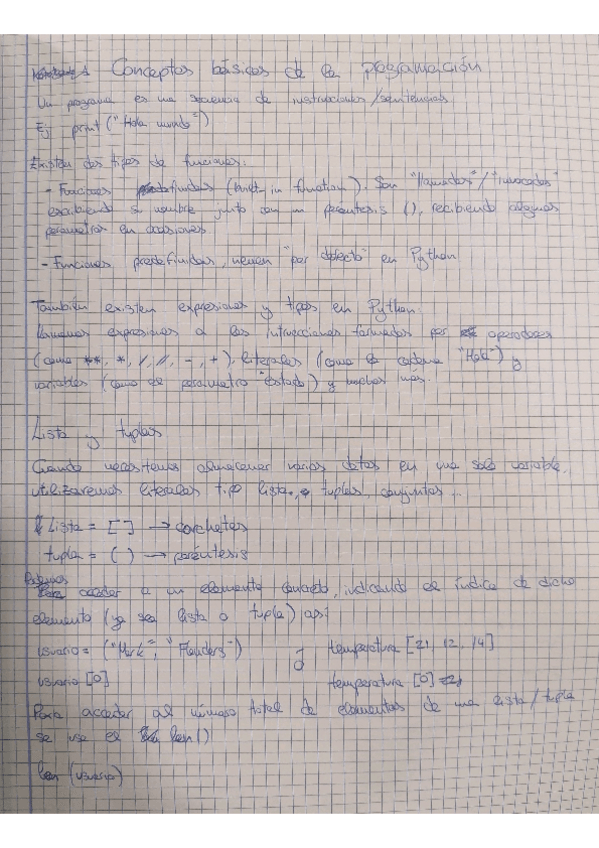 Conceptos básicos de la programación
Un programa es una secuencia de instrucciones/sentencias
Ej print("Hola mundo")
Existen dos tipos de funciones:
- Funciones predefinidas (built-in function). Son "llamadas"/"invocadas"
escribiendo su nombre junto con un paréntesis (), recibiendo algunos
parametros en ocasiones
- Funciones predefinidas, vienen "por defecto" en Python
También existen expresiones y tipos en Python.
Llamamos expresiones a las instrucciones formadas por operadores
(como **, *, /, //, -, +), literales (como la cadena "Hola") y
variables (como el parametro "estado") y muchos más.
Lista y tuplas
Cuando necesitemos almacenar varios datos en una sola variable,
utilizaremos literales tipo lista, tuplas, conjuntos...
Lista = [ ] → corchetes
tupla = ( ) → paréntesis
Podemos
acceder a un elemento concreto, indicando el índice de dicho
elemento (ya sea lista o tupla) así:
usuario = ("Mark", "Flenders") ó temperatura [21, 12, 14]
usuario [0] temperatura [0]
Para acceder al número total de elementos de una lista/tupla
se usa el len()
len (usuario)